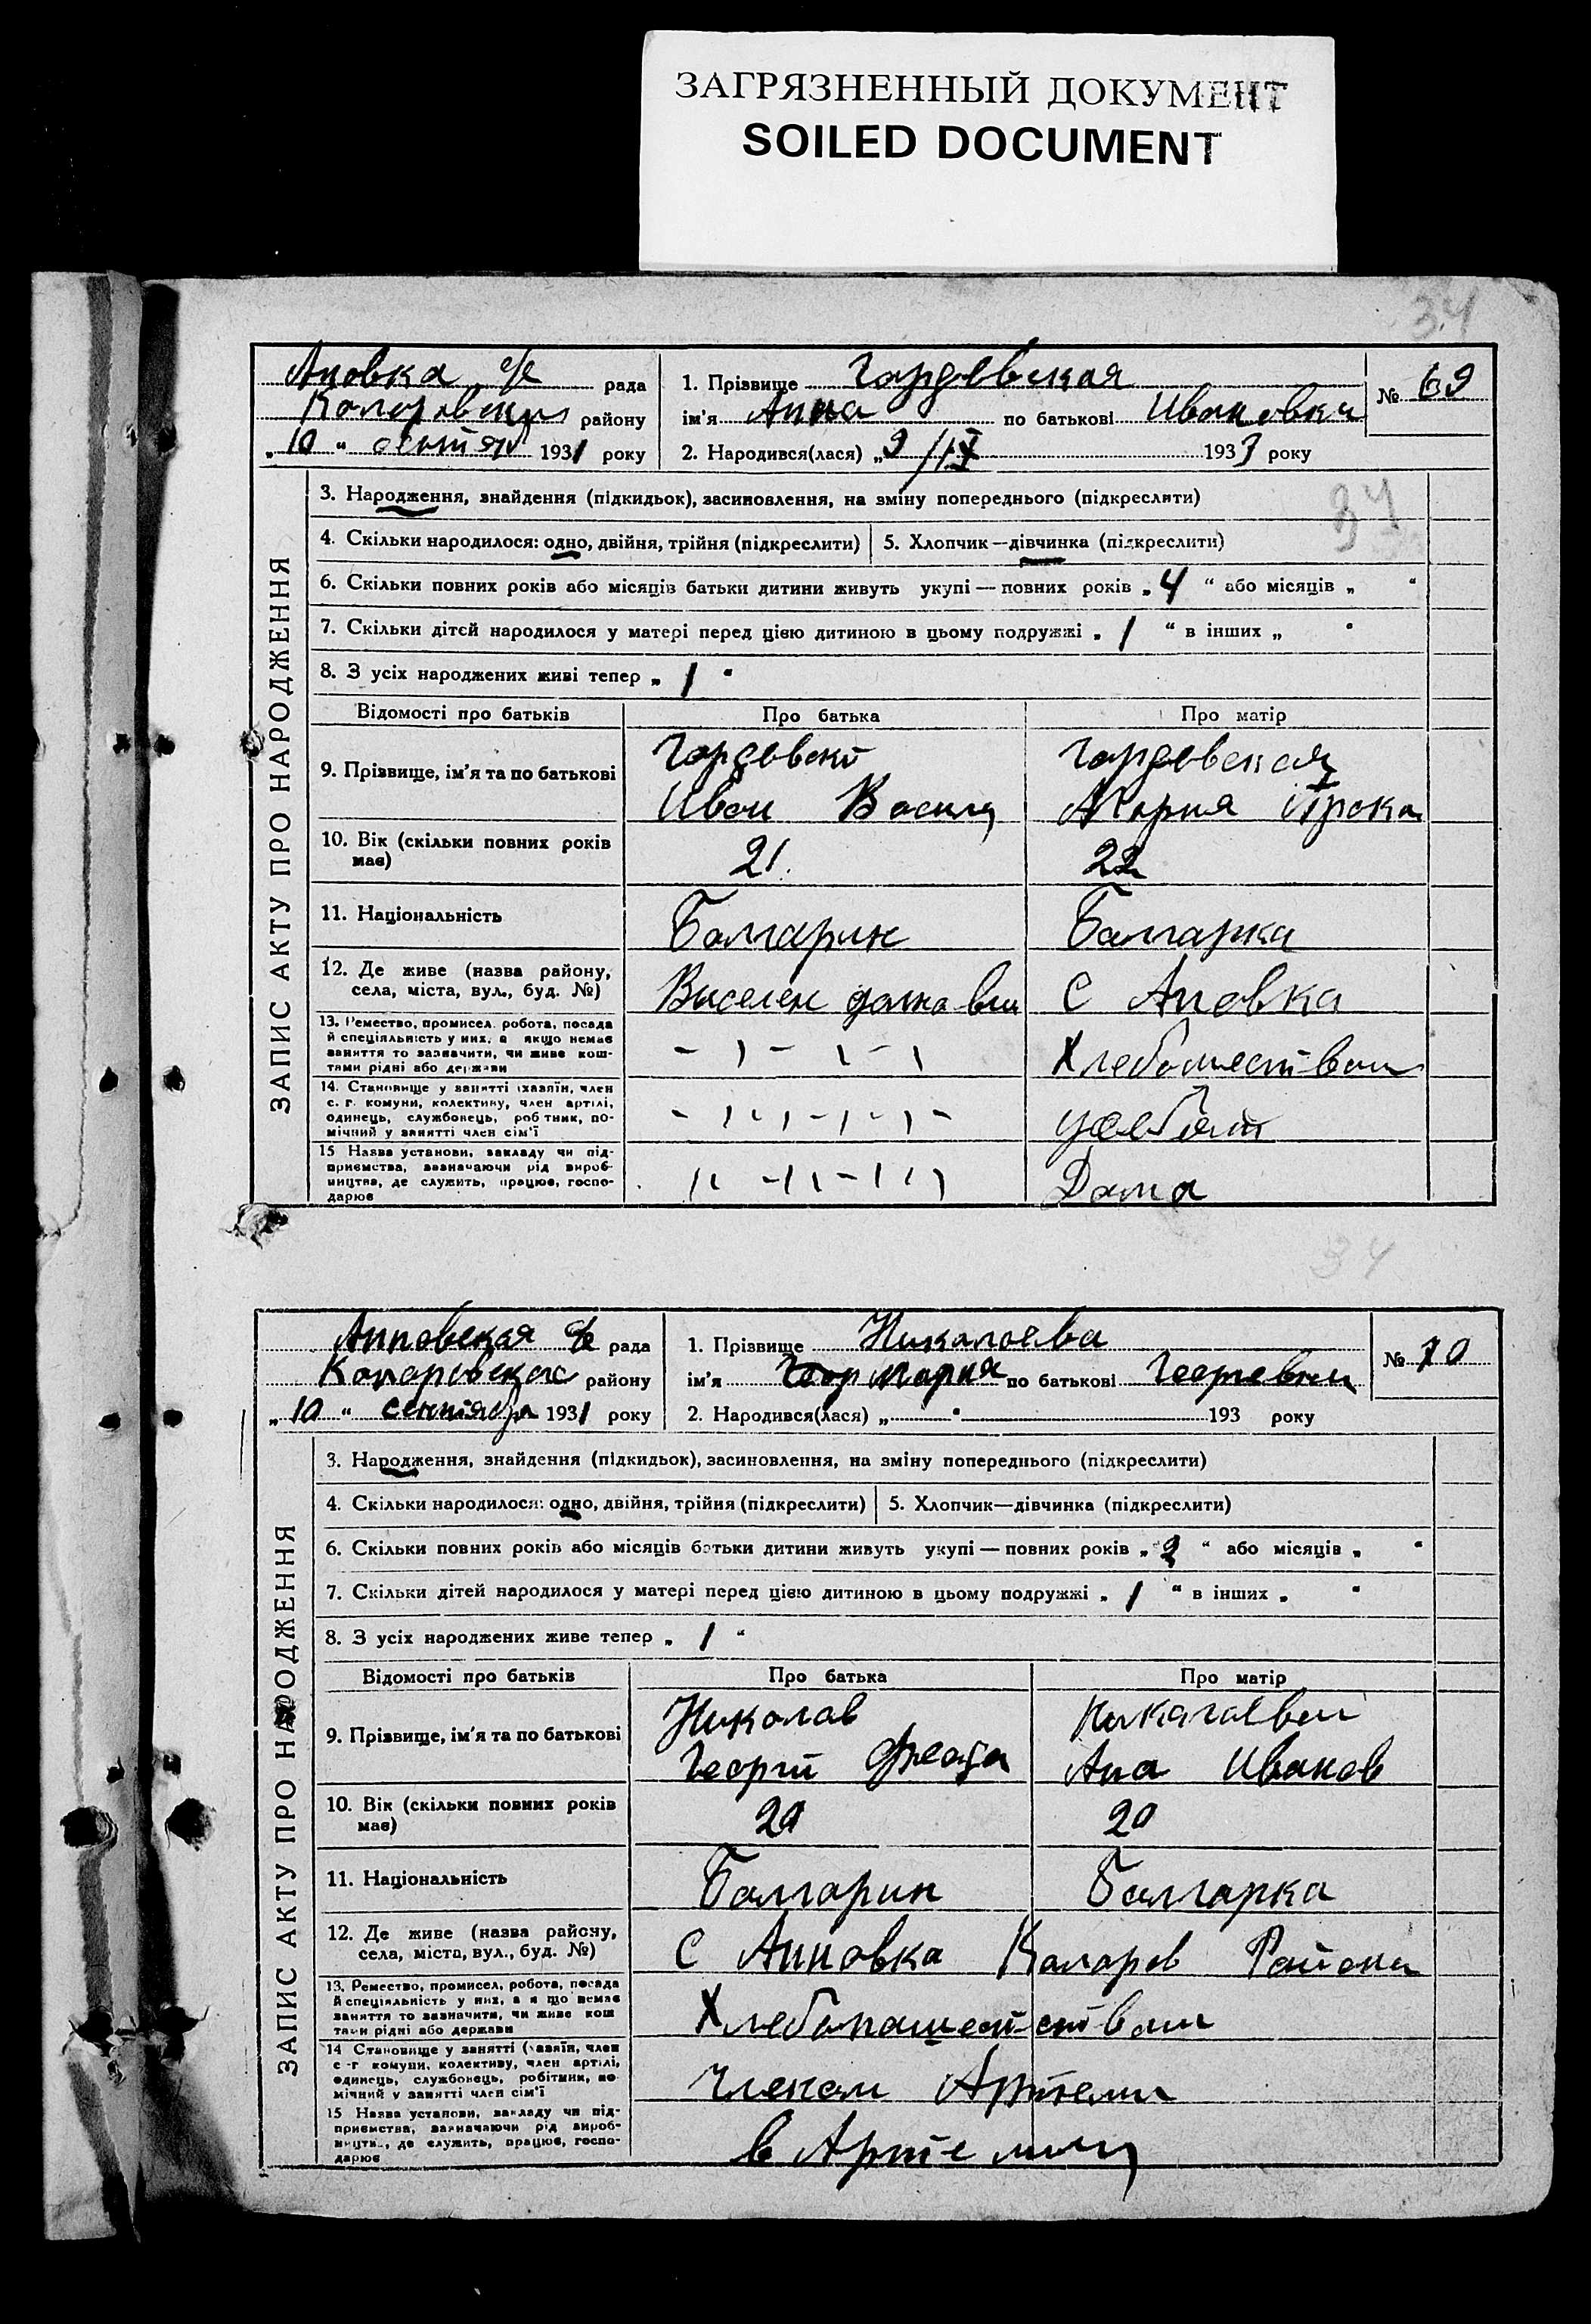 ЗАГРЯЗНЕННЫЙ ДОКУМЕНТ
SOILED DOCUMENT
34
Ановка с/с рада
района району
„10" 1931 року
1. Прізвище
ім'я Анна по батькові Ивановка
2. Народився(лася) „9/IX 1933 року
№ 69
34
ЗАПИС АКТУ ПРО НАРОДЖЕННЯ
3. Народження, знайдення (підкидьок), засиновлення, на зміну попереднього (підкреслити)
4. Скільки народилося: одно, двійня, трійня (підкреслити) 5. Хлопчик—дівчинка (підкреслити)
6. Скільки повних років або місяців батьки дитини живуть укупі — повних років „4" або місяців „ "
7. Скільки дітей народилося у матері перед цією дитиною в цьому подружжі „1" в інших „ "
8. З усіх народжених живі тепер „1"
Відомості про батьків Про батька Про матір
9. Прізвище, ім'я та по батькові
Иван Васил Мария
10. Вік (скільки повних років має) 21. 22
11. Національність Болгарин Болгарка
12. Де живе (назва району, села, міста, вул., буд. №) Выселен С Ановка
13. Ремество, промисел, робота, посада й спеціяльність у них, а якщо немає заняття то зазначити, чи живе коштами рідні або держави
14. Становище у занятті (хазяїн, член с. г. комуни, колективу, член артілі, одинець, службовець, робітник, помічний у занятті член сім'ї
15 Назва установи, закладу чи підприємства, зазначаючи рід виробництва, де служить, працює, господарює Дома
34
Анновская с/с рада
району
„10" сентября 1931 року
1. Прізвище Николаева
ім'я Мария по батькові Георгевна
2. Народився(лася) „ " 193 року
№ 70
ЗАПИС АКТУ ПРО НАРОДЖЕННЯ
3. Народження, знайдення (підкидьок), засиновлення, на зміну попереднього (підкреслити)
4. Скільки народилося: одно, двійня, трійня (підкреслити) 5. Хлопчик—дівчинка (підкреслити)
6. Скільки повних років або місяців батьки дитини живуть укупі — повних років „2" або місяців „ "
7. Скільки дітей народилося у матері перед цією дитиною в цьому подружжі „1" в інших „ "
8. З усіх народжених живе тепер „1"
Відомості про батьків Про батька Про матір
9. Прізвище, ім'я та по батькові Николав
Георгий Ана Иванов
10. Вік (скільки повних років має) 20 20
11. Національність Болгарин Болгарка
12. Де живе (назва району, села, міста, вул., буд. №) С Анновка Коларов Района
13. Ремество, промисел, робота, посада й спеціяльність у них, а якщо немає заняття то зазначити, чи живе коштами рідні або держави
14 Становище у занятті (хазяїн, член с.-г. комуни, колективу, член артілі, одинець, службовець, робітник, помічний у занятті член сім'ї Членом Артели
15 Назва установи, закладу чи підприємства, зазначаючи рід виробництва, де служить, працює, господарює в